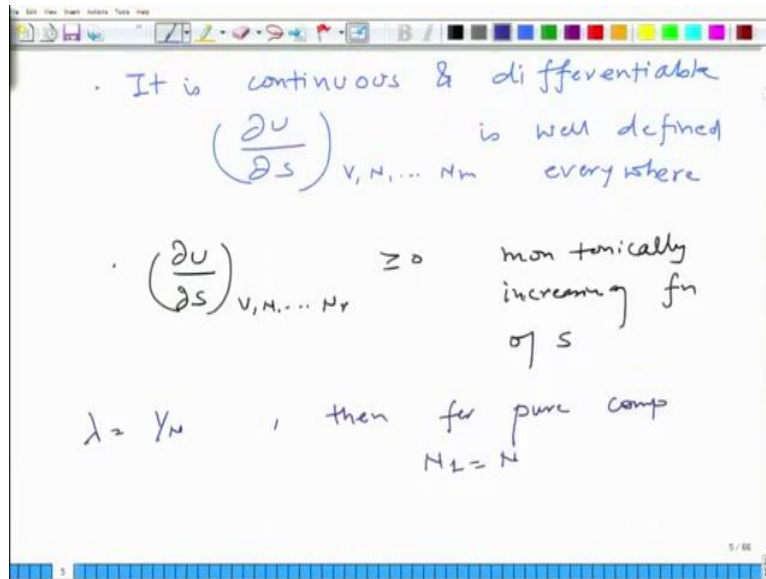 File Edit View Insert Actions Tools Help
B I
. It is continuous & differentiable
(∂U/∂S) V, N, ... Nm is well defined
everywhere
. (∂U/∂S) V, N, ... Nr ≥ 0 mon tonically
increasing fn
of S
λ = 1/N , then for pure comp
N1 = N
5 / 66
5